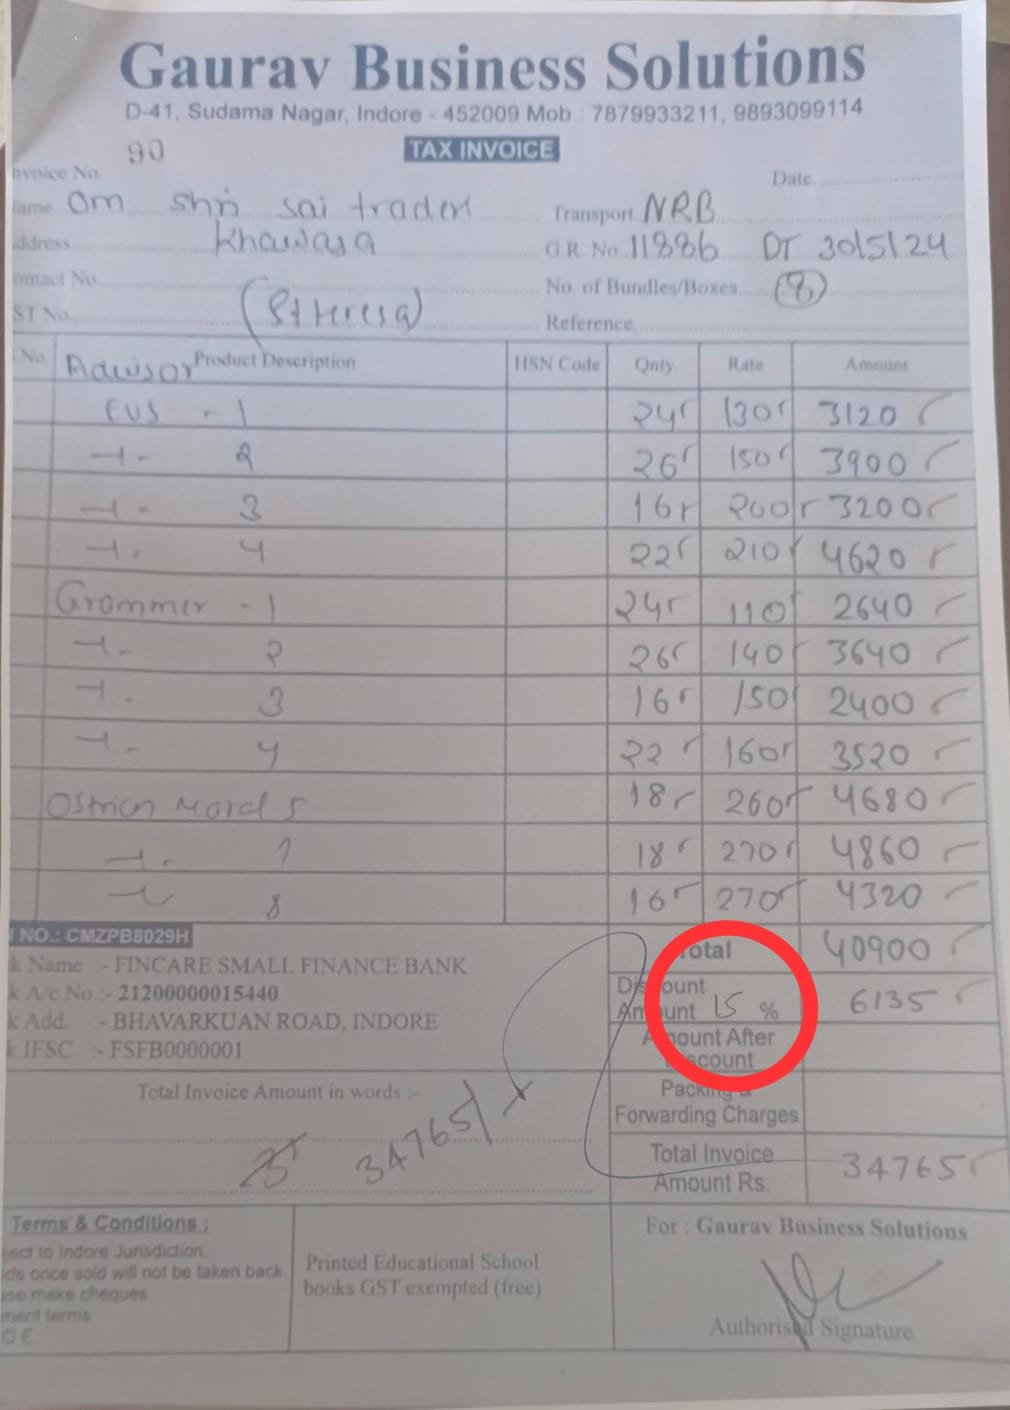 Gaurav Business Solutions
D-41, Sudama Nagar, Indore - 452009 Mob.: 7879933211, 9893099114
TAX INVOICE
nvoice No. 90
Date
ame Om Shri Sai traders
Transport NRB
ddress Khawasa
G.R. No. 11886 DT 30/5/24
ontact No.
No. of Bundles/Boxes (8)
ST No.
Reference
No. Product Description HSN Code Qnty. Rate Amount
Advisor
EVS - 1 24 130 3120
2 26 150 3900
3 16 200 3200
4 22 210 4620
Grammer - 1 24 110 2640
2 26 140 3640
3 16 150 2400
4 22 160 3520
Ostrich 5 18 260 4680
7 18 270 4860
8 16 270 4320
NO.: CMZPB8029H
Total 40900
k Name :- FINCARE SMALL FINANCE BANK
k A/c.No.:- 21200000015440
k Add. :- BHAVARKUAN ROAD, INDORE
k IFSC :- FSFB0000001
Discount
Amount 15 % 6135
Amount After
Discount
Total Invoice Amount in words :-
Packing &
Forwarding Charges
34765/
Total Invoice
Amount Rs. 34765
Terms & Conditions :
ject to Indore Jurisdiction.
ds once sold will not be taken back.
se make cheques
ment terms
O E
Printed Educational School
books GST exempted (free)
For : Gaurav Business Solutions
Authorised Signature